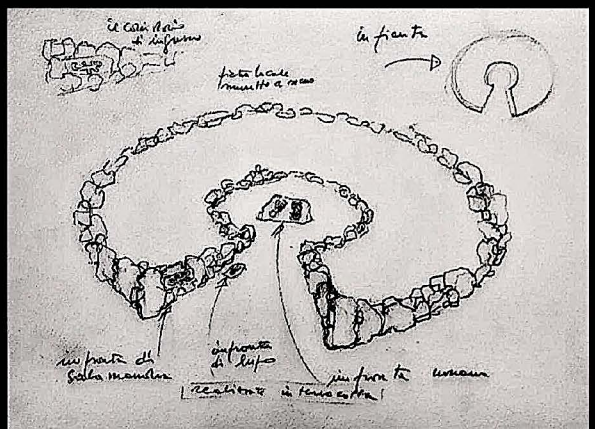 il corridoio
di ingresso
in pianta
pietra locale
muretto a secco
impronta di
salamandra
impronta
di lupo
impronta umana
(realizzate in terracotta)